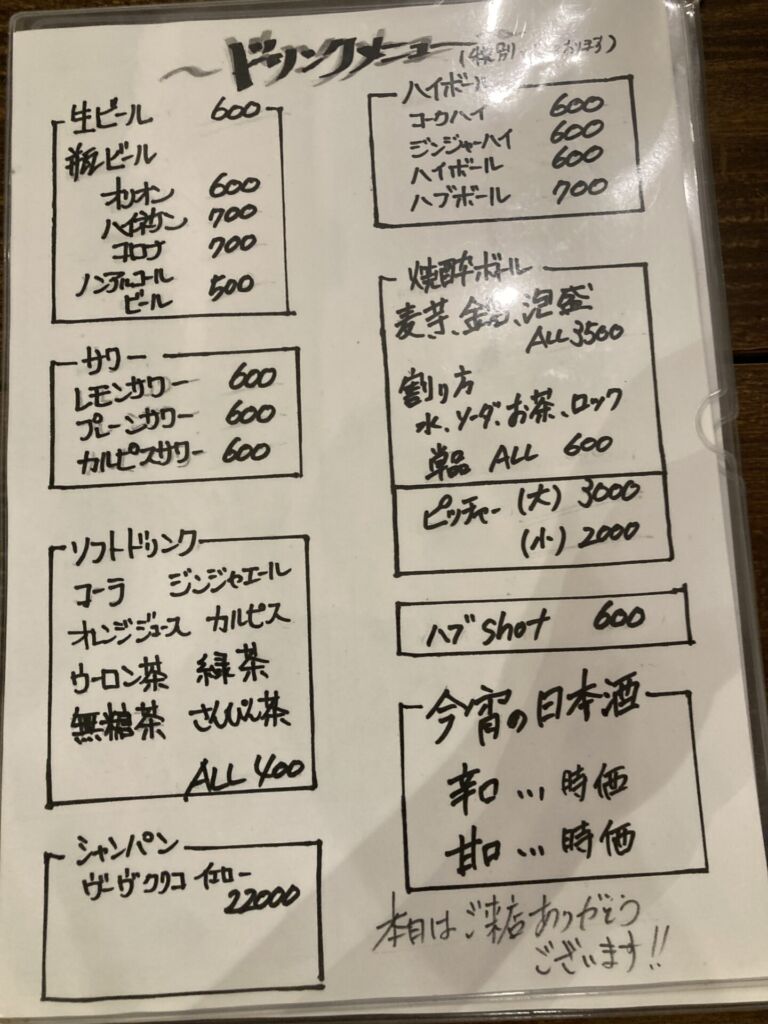 〜ドリンクメニュー〜
(特別 あります)
生ビール 600
瓶ビール
オリオン 600
ハイネケン 700
コロナ 700
ノンアルコール
ビール 500
サワー
レモンサワー 600
プレーンサワー 600
カルピスサワー 600
ソフトドリンク
コーラ ジンジャエール
オレンジジュース カルピス
ウーロン茶 緑茶
無糖茶 さんぴん茶
ALL 400
シャンパン
ヴーヴクリコ イエロー
22000
ハイボール
コークハイ 600
ジンジャーハイ 600
ハイボール 600
ハブボール 700
焼酎ボトル
麦、芋、 泡盛
ALL 3500
割り方
水、ソーダ、お茶、ロック
単品 ALL 600
ピッチャー (大) 3000
(小) 2000
ハブ shot 600
今宵の日本酒
辛口 … 時価
甘口 … 時価
本日はご来店ありがとう
ございます!!